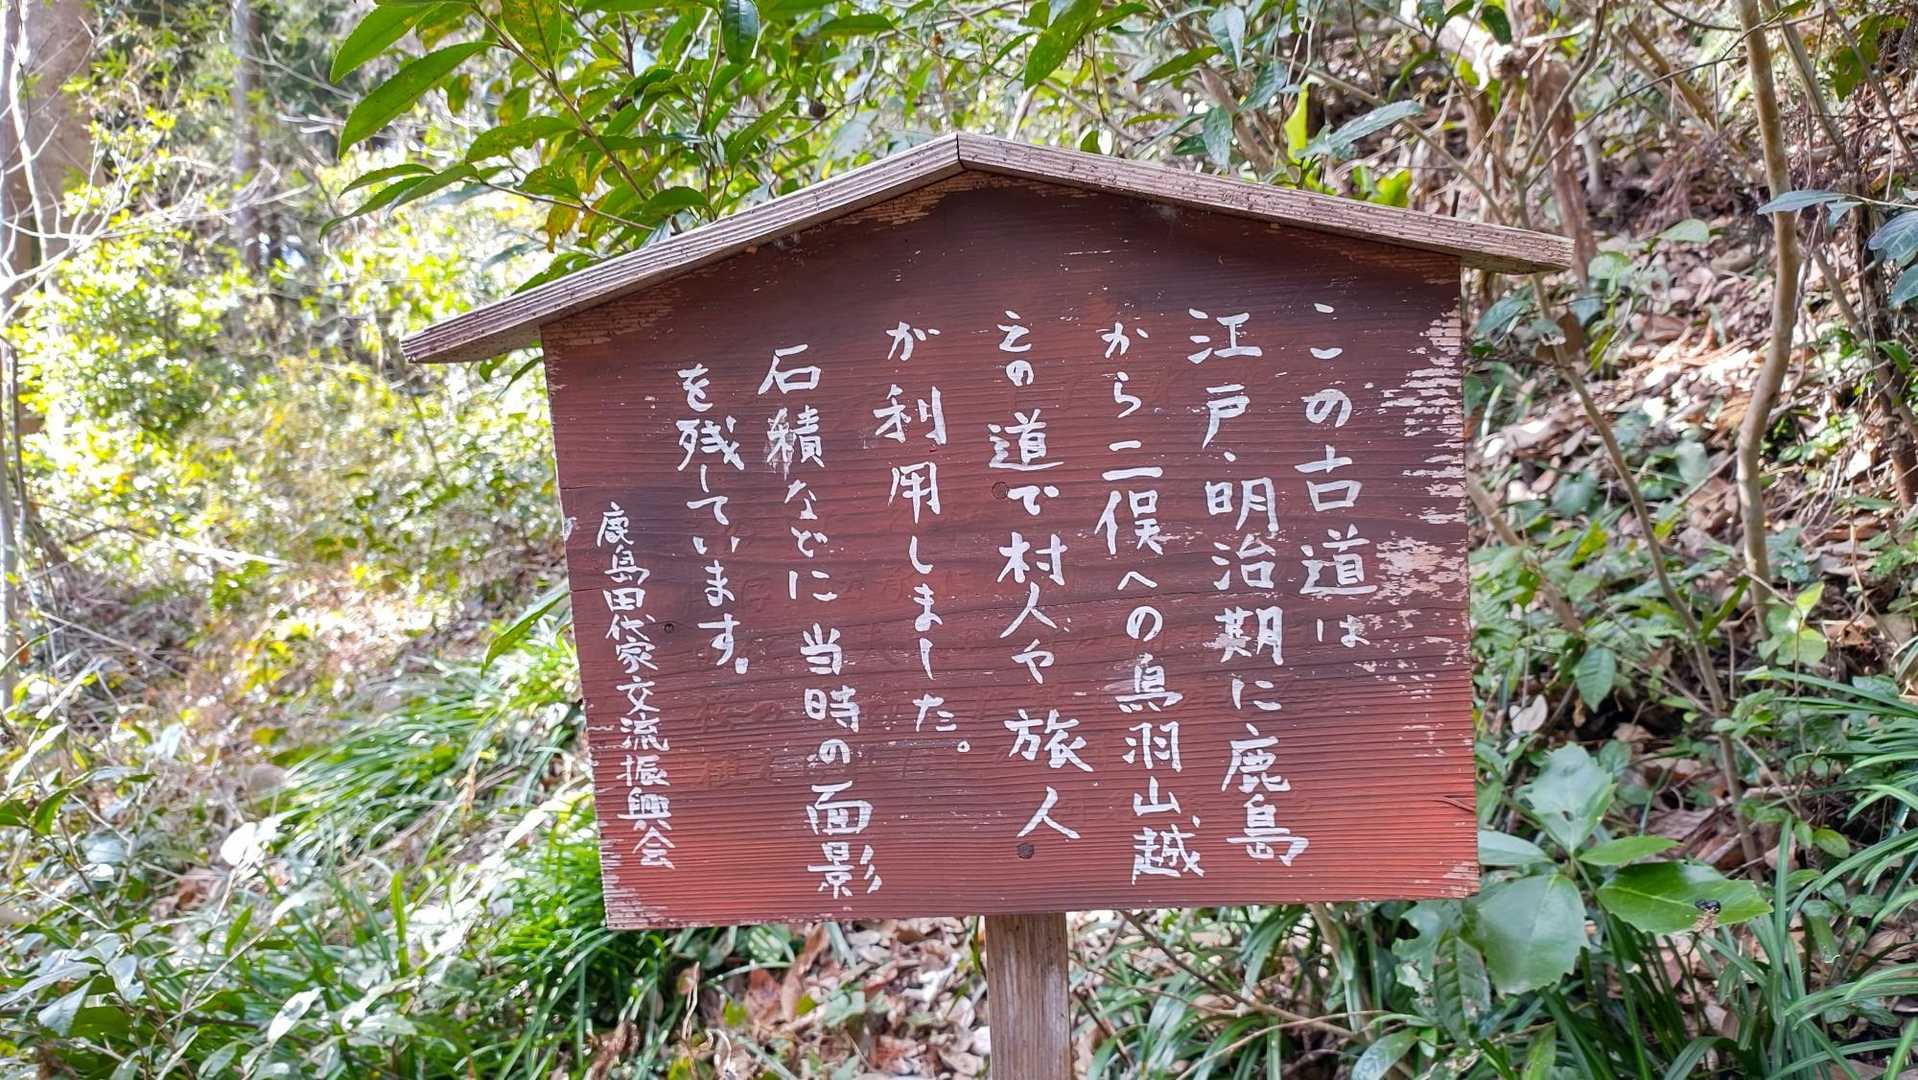 この古道は
江戸、明治期に鹿島
から二俣への鳥羽山越
えの道で村人や旅人
が利用しました。
石積などに当時の面影
を残しています。
鹿島田代家交流振興会